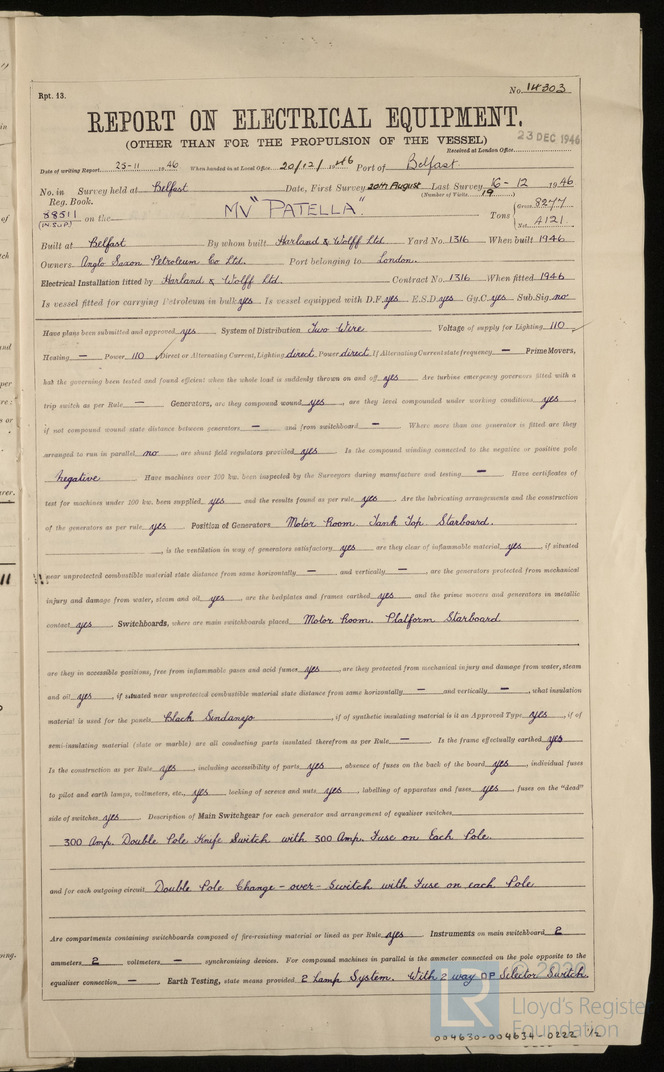 Rpt. 13.
No. 14303
REPORT ON ELECTRICAL EQUIPMENT.
(OTHER THAN FOR THE PROPULSION OF THE VESSEL)
23 DEC 1946
Received at London Office
Date of writing Report 25-11 1946 When handed in at Local Office 20/12/1946 Port of Belfast
No. in Survey held at Belfast Date, First Survey 20th August Last Survey 16-12 1946
Reg. Book. (Number of Visits 19)
88511 on the MV "PATELLA" Tons Gross 8277
(IN SUP) Net 4121
Built at Belfast By whom built Harland & Wolff Ltd Yard No. 1316 When built 1946
Owners Anglo Saxon Petroleum Co Ltd. Port belonging to London.
Electrical Installation fitted by Harland & Wolff Ltd. Contract No. 1316 When fitted 1946
Is vessel fitted for carrying Petroleum in bulk yes Is vessel equipped with D.F. yes E.S.D. yes Gy.C. yes Sub.Sig. no
Have plans been submitted and approved yes System of Distribution Two Wire Voltage of supply for Lighting 110
Heating — Power 110 Direct or Alternating Current, Lighting direct Power direct If Alternating Current state frequency — Prime Movers,
has the governing been tested and found efficient when the whole load is suddenly thrown on and off yes Are turbine emergency governors fitted with a
trip switch as per Rule — Generators, are they compound wound yes, are they level compounded under working conditions yes,
if not compound wound state distance between generators — and from switchboard — Where more than one generator is fitted are they
arranged to run in parallel no, are shunt field regulators provided yes Is the compound winding connected to the negative or positive pole
negative Have machines over 100 kw. been inspected by the Surveyors during manufacture and testing — Have certificates of
test for machines under 100 kw. been supplied yes and the results found as per rule yes Are the lubricating arrangements and the construction
of the generators as per rule yes Position of Generators Motor Room. Tank Top Starboard.
, is the ventilation in way of generators satisfactory yes are they clear of inflammable material yes, if situated
near unprotected combustible material state distance from same horizontally — and vertically —, are the generators protected from mechanical
injury and damage from water, steam and oil yes, are the bedplates and frames earthed yes and the prime movers and generators in metallic
contact yes Switchboards, where are main switchboards placed Motor Room. Platform Starboard
are they in accessible positions, free from inflammable gases and acid fumes yes, are they protected from mechanical injury and damage from water, steam
and oil yes, if situated near unprotected combustible material state distance from same horizontally — and vertically —, what insulation
material is used for the panels Black Sindanyo, if of synthetic insulating material is it an Approved Type yes, if of
semi-insulating material (slate or marble) are all conducting parts insulated therefrom as per Rule — Is the frame effectually earthed yes
Is the construction as per Rule yes, including accessibility of parts yes, absence of fuses on the back of the board yes, individual fuses
to pilot and earth lamps, voltmeters, etc., yes locking of screws and nuts yes, labelling of apparatus and fuses yes, fuses on the "dead"
side of switches yes Description of Main Switchgear for each generator and arrangement of equaliser switches
300 Amp. Double Pole Knife Switch with 300 Amp. Fuse on Each Pole.
and for each outgoing circuit Double Pole Change-over-Switch with Fuse on each Pole
Are compartments containing switchboards composed of fire-resisting material or lined as per Rule yes Instruments on main switchboard 2
ammeters 2 voltmeters — synchronising devices. For compound machines in parallel is the ammeter connected on the pole opposite to the
equaliser connection — Earth Testing, state means provided 2 Lamp System. With 2 way DP Selector Switch.
© 2020
LR
Lloyd's Register
Foundation
004630-004634-0222 1/2